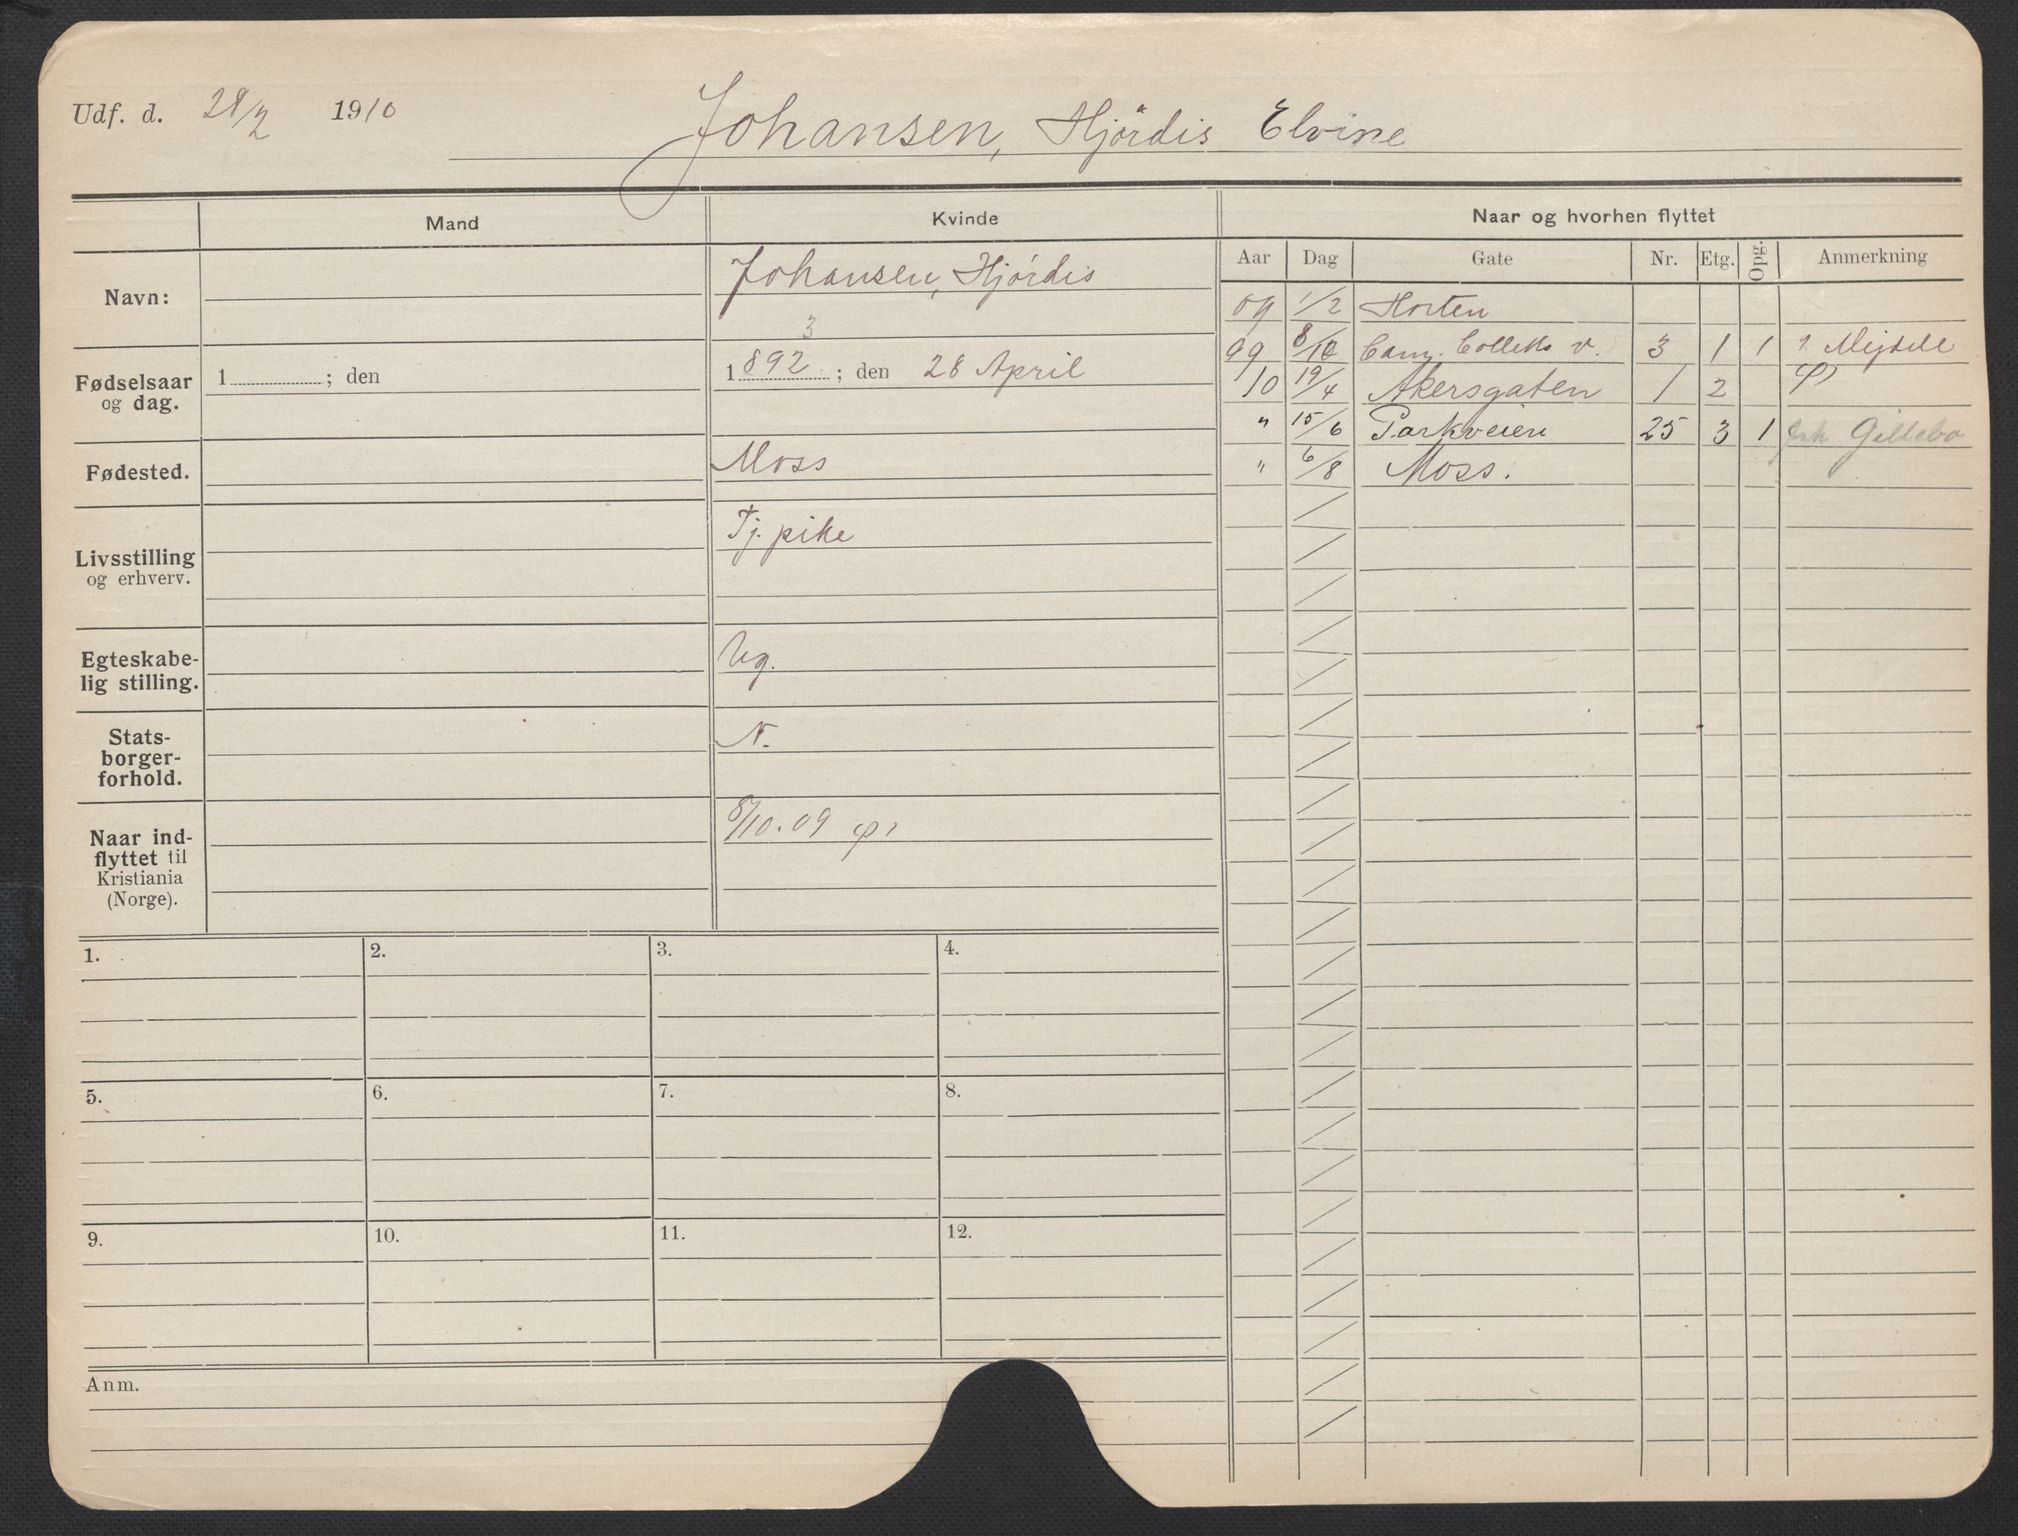 Udf. d. 28/2 1910
Johansen, Hjördis Elvine
Mand
Kvinde
Naar og hvorhen flyttet
Aar Dag Gate Nr. Etg. Opg. Anmerkning
Navn:
Johansen, Hjördis
3
Fødselsaar
og dag.
1 ; den
1892 ; den 28 April
Fødested.
Moss
Livsstilling
og erhverv.
Tj. pike
Egteskabe-
lig stilling.
Ug.
Stats-
borger-
forhold.
N.
Naar ind-
flyttet til
Kristiania
(Norge).
8/10.09
09 1/2 Horten
09 8/10 Cam. Colletts v. 3 1 1 Mejdell
10 19/4 Akersgaten 1 2
" 15/6 Parkveien 25 3 1 Gillebo
" 6/8 Moss.
1.
2.
3.
4.
5.
6.
7.
8.
9.
10.
11.
12.
Anm.